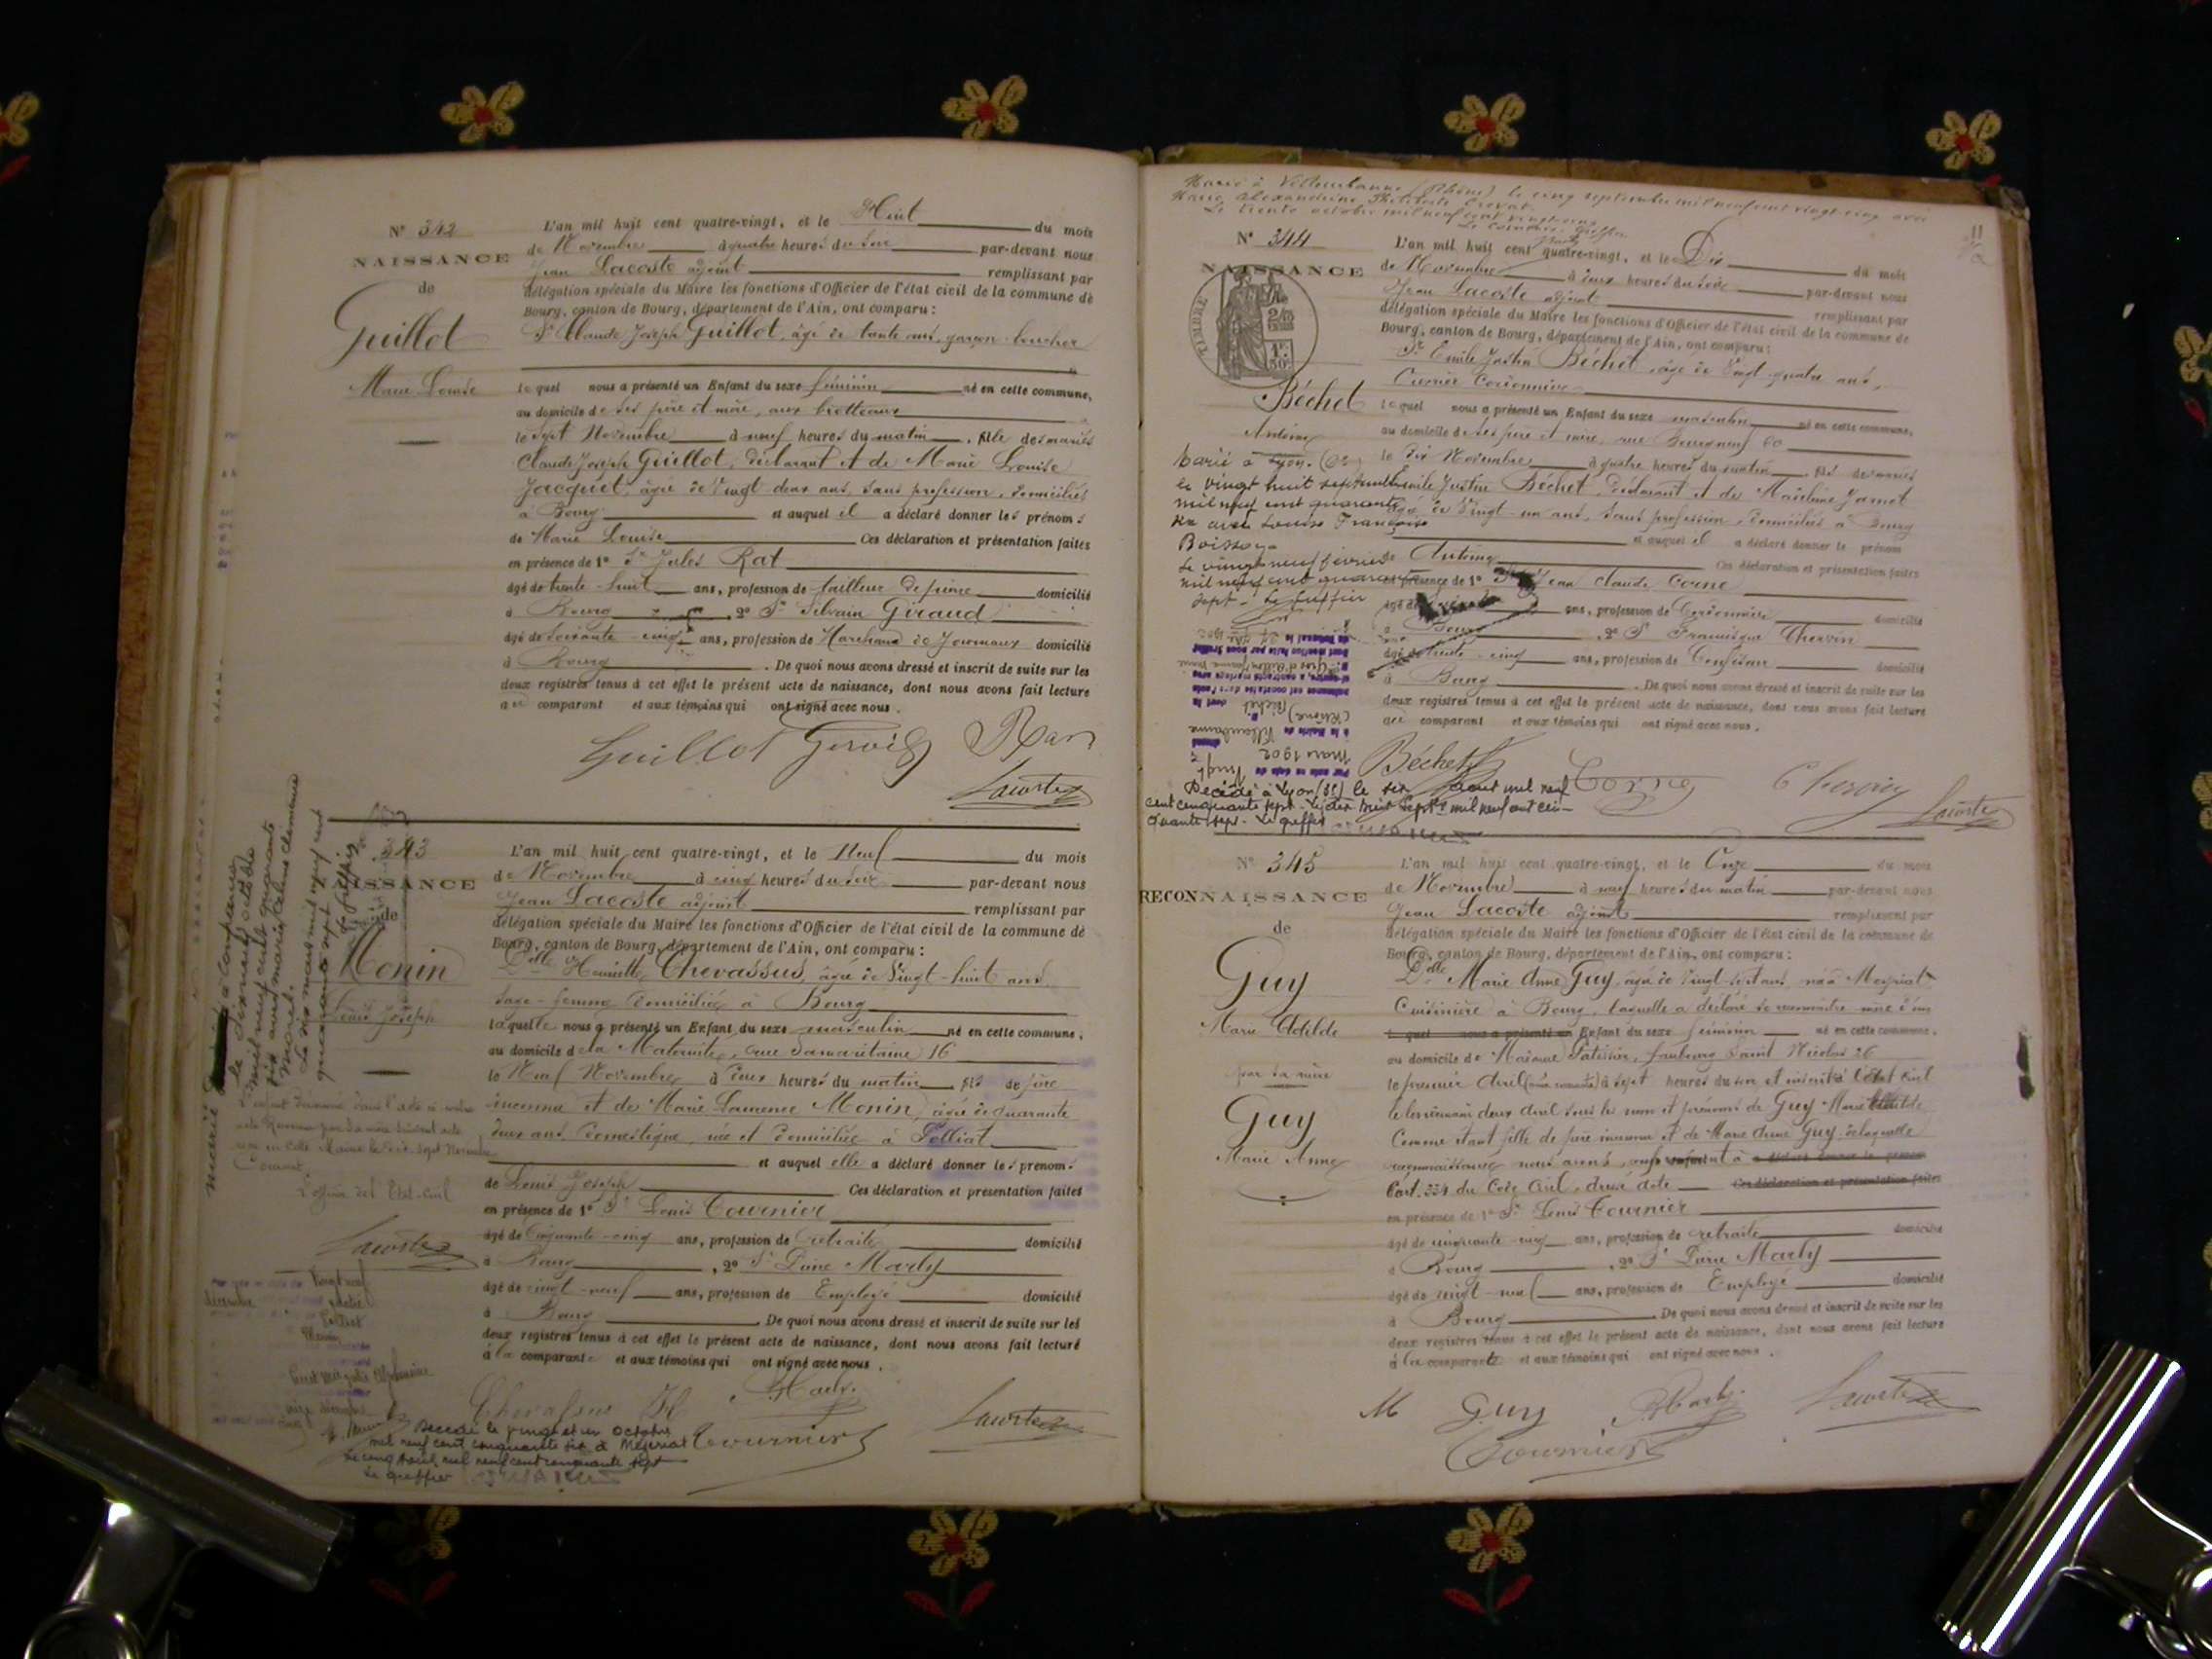 N° 342
NAISSANCE
de
Guillot
Marie Louise
L'an mil huit cent quatre-vingt, et le Huit du mois
de Novembre à quatre heures du soir par-devant nous
Jean Lacoste adjoint remplissant par
délégation spéciale du Maire les fonctions d'Officier de l'état civil de la commune de
Bourg, canton de Bourg, département de l'Ain, ont comparu:
Sr Claude Joseph Guillot, âgé de trente ans, garçon boucher
lequel nous a présenté un Enfant du sexe féminin né en cette commune,
au domicile de ses père et mère, aux brotteaux
le sept Novembre à neuf heures du matin, fille des mariés
Claude Joseph Guillot, déclarant et de Marie Louise
Jacquet, âgée de vingt-deux ans, sans profession, domiciliés
à Bourg et auquel il a déclaré donner les prénoms
de Marie Louise Ces déclaration et présentation faites
en présence de 1° Sr Jules Rat
âgé de trente-huit ans, profession de tailleur de pierre domicilié
à Bourg, 2° Sr Silvain Giraud
âgé de soixante-cinq ans, profession de Marchand de Journaux domicilié
à Bourg. De quoi nous avons dressé et inscrit de suite sur les
deux registres tenus à cet effet le présent acte de naissance, dont nous avons fait lecture
au comparant et aux témoins qui ont signé avec nous.
Guillot
Lacoste
343
NAISSANCE
de
Monin
Louis Joseph
L'an mil huit cent quatre-vingt, et le Neuf du mois
de Novembre à cinq heures du soir par-devant nous
Jean Lacoste adjoint remplissant par
délégation spéciale du Maire les fonctions d'Officier de l'état civil de la commune de
Bourg, canton de Bourg, département de l'Ain, ont comparu:
Delle Henriette Chevassus, âgée de vingt-huit ans
sage-femme domiciliée à Bourg
laquelle nous a présenté un Enfant du sexe masculin né en cette commune,
au domicile de la Maternité, rue Samaritaine 16
le Neuf Novembre à deux heures du matin, fils de père
inconnu et de Marie Laurence Monin, âgée de quarante
deux ans domestique, née et domiciliée à Polliat
et auquel elle a déclaré donner les prénoms
de Louis Joseph Ces déclaration et présentation faites
en présence de 1° Sr Louis Tournier
âgé de cinquante-cinq ans, profession de retraité domicilié
à Bourg, 2° Sr Pierre Marly
âgé de vingt-neuf ans, profession de Employé domicilié
à Bourg. De quoi nous avons dressé et inscrit de suite sur les
deux registres tenus à cet effet le présent acte de naissance, dont nous avons fait lecture
à la comparante et aux témoins qui ont signé avec nous.
L'officier de l'Etat-Civil
Lacoste
Tournier
Lacoste
Décédé le vingt et un Octobre
mil neuf cent cinquante six à Mézériat
Le cinq avril mil neuf cent cinquante sept
Le greffier
Marié à Villeurbanne (Rhône) le cinq septembre mil neuf cent vingt-cinq avec
Le trente octobre mil neuf cent vingt-cinq
N° 344
NAISSANCE
TIMBRE
Béchet
Antoine
L'an mil huit cent quatre-vingt, et le Dix du mois
de Novembre à deux heures du soir par-devant nous
Jean Lacoste adjoint remplissant par
délégation spéciale du Maire les fonctions d'Officier de l'état civil de la commune de
Bourg, canton de Bourg, département de l'Ain, ont comparu:
Sr Emile Justin Béchet, âgé de vingt-quatre ans,
Ouvrier Cordonnier
lequel nous a présenté un Enfant du sexe masculin né en cette commune,
au domicile de ses père et mère, rue
le dix Novembre à quatre heures du matin, fils des mariés
Emile Justin Béchet, déclarant et de Marceline Jamet
âgée de vingt-un ans, sans profession, domiciliés à Bourg
et auquel il a déclaré donner le prénom
de Antoine Ces déclaration et présentation faites
en présence de 1° Sr Jean Claude Corne
ans, profession de Cordonnier domicilié
à Bourg, 2° Sr Francisque Chervin
âgé de trente-cinq ans, profession de Confiseur domicilié
à Bourg. De quoi nous avons dressé et inscrit de suite sur les
deux registres tenus à cet effet le présent acte de naissance, dont nous avons fait lecture
au comparant et aux témoins qui ont signé avec nous.
Marié à Lyon
le vingt huit septembre
mil neuf cent quarante
six avec Louise Françoise
Le vingt neuf février
mil neuf cent quarante
sept. Le Greffier
Béchet
Corne
Chervin
Lacoste
Décédé à Lyon (3e) le six août mil neuf
cent cinquante sept. Le dix huit septe mil neuf cent cin-
quante sept. Le greffier
N° 345
RECONNAISSANCE
de
Guy
Marie Clotilde
par sa mère
Guy
Marie Anne
L'an mil huit cent quatre-vingt, et le Onze du mois
de Novembre à neuf heures du matin par-devant nous
Jean Lacoste adjoint remplissant par
délégation spéciale du Maire les fonctions d'Officier de l'état civil de la commune de
Bourg, canton de Bourg, département de l'Ain, ont comparu:
Delle Marie Anne Guy, âgée de vingt-sept ans, née à Meyriat
Cuisinière à Bourg, laquelle a déclaré se reconnaître mère d'un
lequel nous a présenté un Enfant du sexe féminin né en cette commune,
au domicile de Madame Patissier, faubourg Saint Nicolas 26
le premier Avril à sept heures du soir et inscrit à l'Etat civil
le lendemain deux Avril sous les nom et prénoms de Guy Marie Clotilde
comme étant fille de père inconnu et de Marie Anne Guy, de laquelle
reconnaissance nous avons, conformément à a déclaré donner le prénom
l'art. 334 du Code Civil, dressé acte Ces déclaration et présentation faites
en présence de 1° Sr Louis Tournier
âgé de cinquante-cinq ans, profession de retraité domicilié
à Bourg, 2° Sr Pierre Marly
âgé de vingt-neuf ans, profession de Employé domicilié
à Bourg. De quoi nous avons dressé et inscrit de suite sur les
deux registres tenus à cet effet le présent acte de naissance, dont nous avons fait lecture
à la comparante et aux témoins qui ont signé avec nous.
M Guy
Marly
Lacoste
Tournier